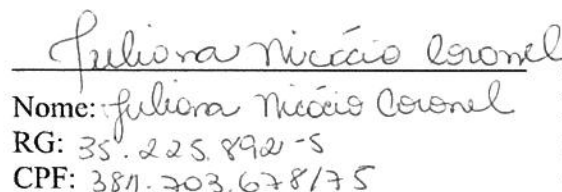 Juliana Nicácio Coronel
Nome: Juliana Nicácio Coronel
RG: 35.225.892-5
CPF: 381.703.678/75